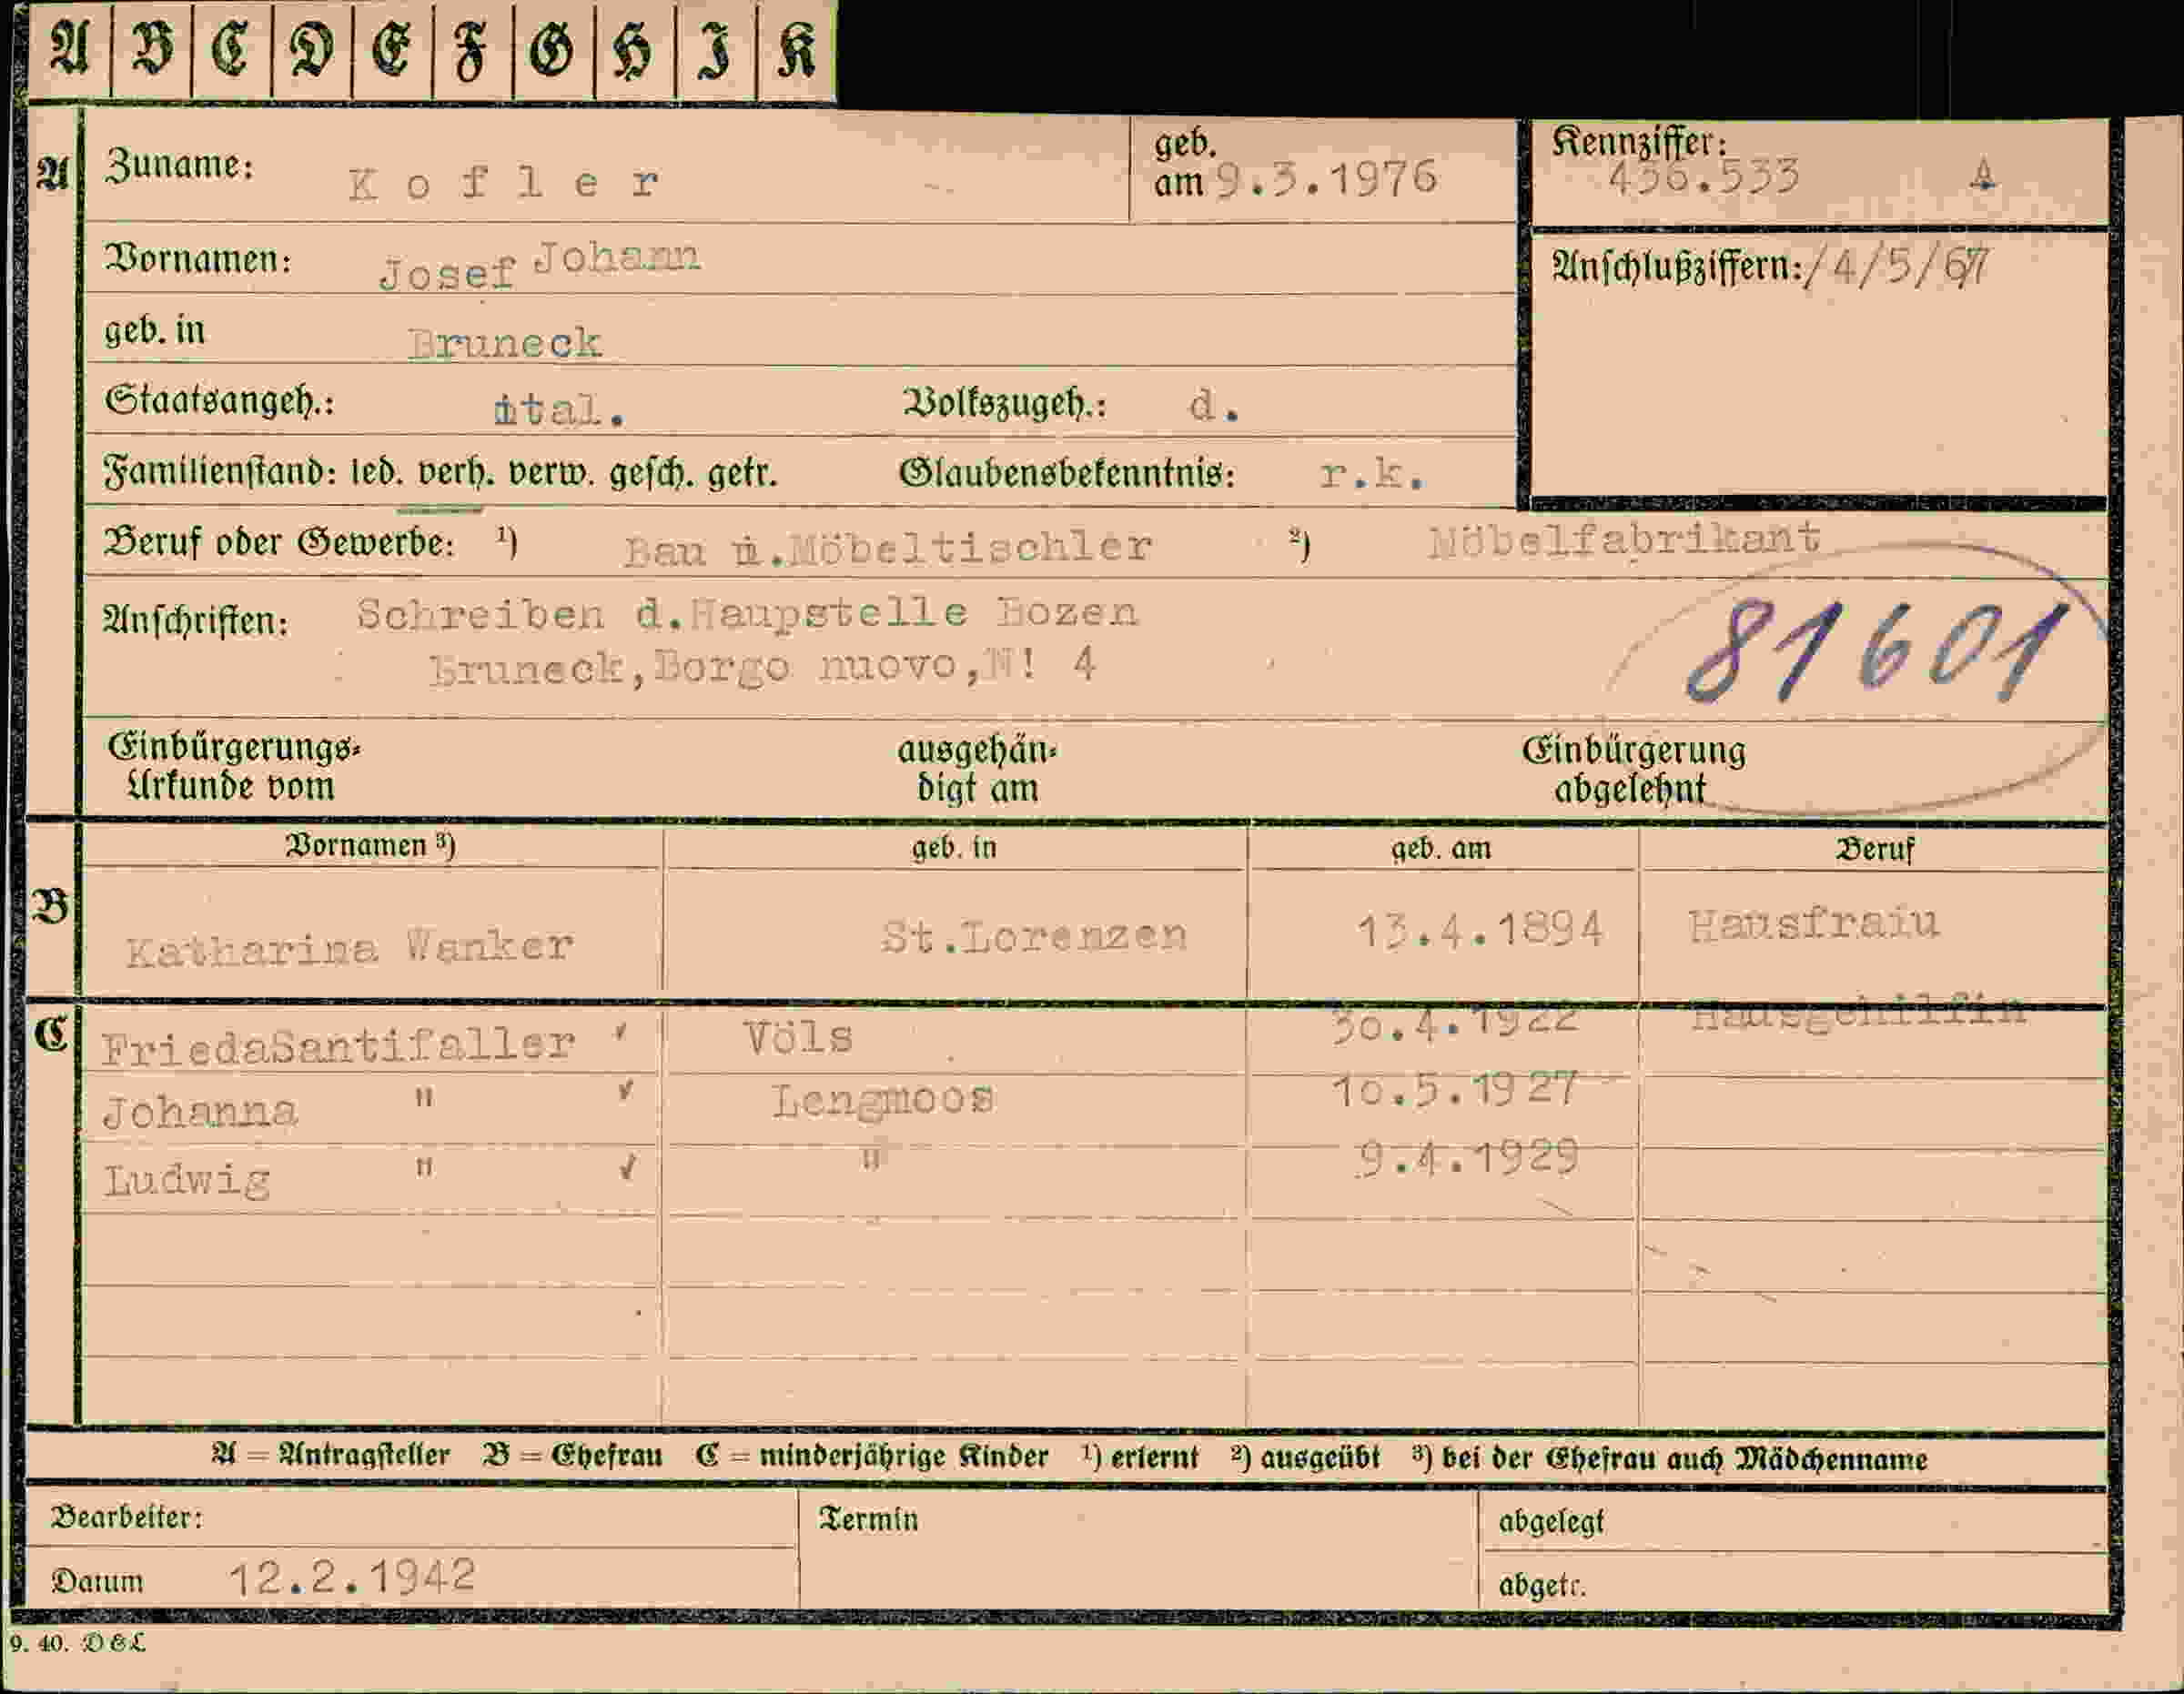 A B C D E F G H I K
A Zuname: Kofler geb. am 9.3.1976 Kennziffer: 436.533 A
Vornamen: Josef Johann Anschlußziffern: /4/5/67
geb. in Bruneck
Staatsangeh.: ital. Volkszugeh.: d.
Familienstand: led. verh. verw. gesch. getr. Glaubensbekenntnis: r.k.
Beruf oder Gewerbe: ¹) Bau u.Möbeltischler ²) Möbelfabrikant
Anschriften: Schreiben d.Haupstelle Bozen
Bruneck,Borgo nuovo,N! 4 81601
Einbürgerungs-Urkunde vom ausgehändigt am Einbürgerung abgelehnt
Vornamen ³) geb. in geb. am Beruf
B Katharina Wanker St.Lorenzen 13.4.1894 Hausfraiu
C FriedaSantifaller ✓ Völs 30.4.1922 Hausgehilfin
Johanna " ✓ Lengmoos 10.5.1927
Ludwig " ✓ " 9.4.1929
A = Antragsteller B = Ehefrau C = minderjährige Kinder ¹) erlernt ²) ausgeübt ³) bei der Ehefrau auch Mädchenname
Bearbeiter: Termin abgelegt
Datum 12.2.1942 abgetr.
9. 40. D & L